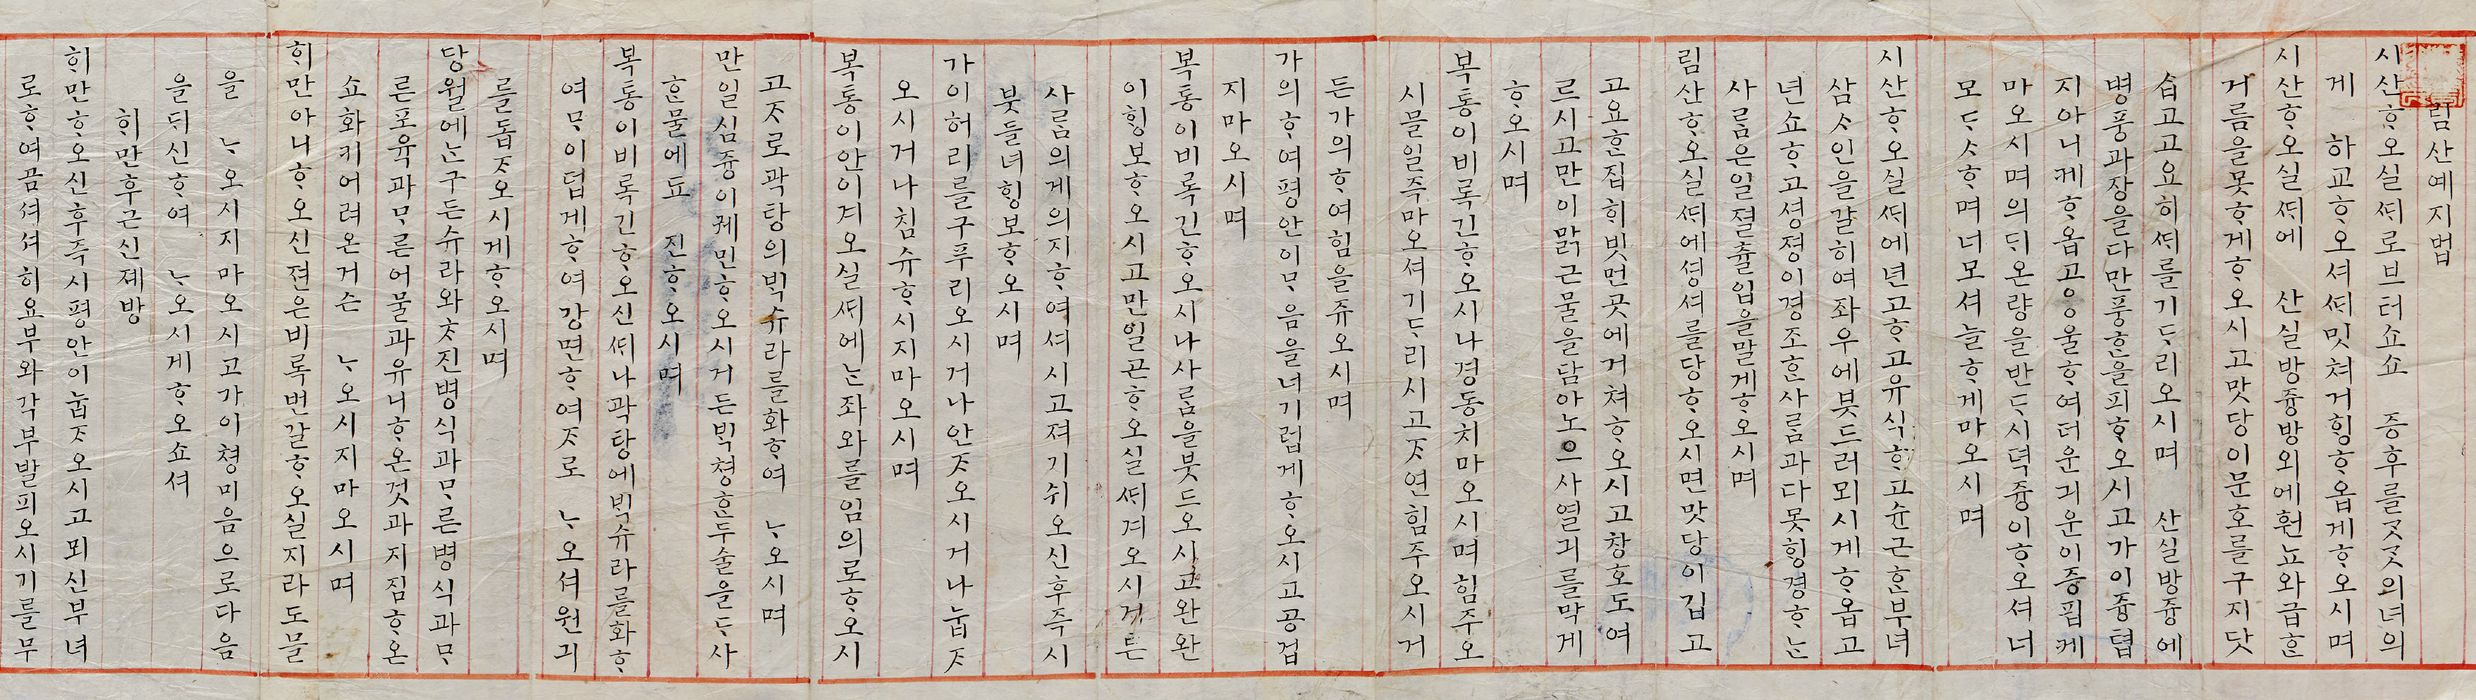 림산예지법
시산ᄒᆞ오실ᄯᆡ로브터쇼쇼 증후를ᄌᆞᄌᆞ의녀의
게 하교ᄒᆞ오셔ᄯᆡ밋쳐거ᄒᆡᆼᄒᆞ옵게ᄒᆞ오시며
시산ᄒᆞ오실ᄯᆡ에 산실방즁방외에훤뇨와급ᄒᆞᆫ
거름을못ᄒᆞ게ᄒᆞ오시고맛당이문호를구지닷
습고고요히ᄯᆡ를기ᄃᆞ리오시며 산실방즁에
병풍과장을다만풍한을피ᄒᆞ오시고가이즁텹
지아니케ᄒᆞ옵공우울ᄒᆞ여더운긔운이증핍게
마오시며의ᄃᆡ온량을반ᄃᆞ시덕즁이ᄒᆞ오셔너
모ᄃᆞᄉᆞᄒᆞ며너모셔늘ᄒᆞ게마오시며
시산ᄒᆞ오실ᄯᆡ에년고ᄒᆞ고유식ᄒᆞ고슌근ᄒᆞᆫ부녀
삼ᄉᆞ인을ᄀᆞᆯ히여좌우에븟드러뫼시게ᄒᆞ옵고
년쇼ᄒᆞ고셩졍이경조ᄒᆞᆫ사ᄅᆞᆷ과다못ᄒᆡᆼ경ᄒᆞᄂᆞᆫ
사ᄅᆞᆷ은일졀츌입을말게ᄒᆞ오시며
림산ᄒᆞ오실ᄯᆡ에셩셔를당ᄒᆞ오시면맛당이깁고
고요ᄒᆞᆫ집희빗먼곳에거쳐ᄒᆞ오시고창호도여
르시고만이맑근물을담아노으사열긔를막게
ᄒᆞ오시며
복통이비록긴ᄒᆞ오시나경동치마오시며힘주오
시믈일죽마오셔기ᄃᆞ리시고ᄌᆞ연힘주오시거
든가의ᄒᆞ여힘을쥬오시며
가의ᄒᆞ여평안이ᄆᆞ음을녀기럽게ᄒᆞ오시고공겁
지마오시며
복통이비록긴ᄒᆞ오시나사ᄅᆞᆷ을븟드오시고완완
이ᄒᆡᆼ보ᄒᆞ오시고만일곤ᄒᆞ오실ᄯᆡ겨오시거든
사ᄅᆞᆷ의게의지ᄒᆞ여셔시고져기쉬오신후주시
붓들녀ᄒᆡᆼ보ᄒᆞ오시며
가이허리를구푸리오시거나안ᄌᆞ오시거나눕ᄌᆞ
오시거나침슈ᄒᆞ시지마오시며
복통이안이겨오실ᄯᆡ에ᄂᆞᆫ좌와를임의로ᄒᆞ오시
고ᄌᆞ로곽탕의ᄇᆡᆨ슈라를화ᄒᆞ여 ᄂᆞ오시며
만일심즁이궤민ᄒᆞ오시거든ᄇᆡᆨ쳥ᄒᆞᆫ두술을ᄃᆞ사
ᄒᆞᆫ물에됴 진ᄒᆞ오시며
복통이비록긴ᄒᆞ오신ᄯᆡ나곽탕에ᄇᆡᆨ슈라를화ᄒᆞ
여ᄆᆞ이덥게ᄒᆞ여강면ᄒᆞ여ᄌᆞ로 ᄂᆞ오셔원긔
를돕ᄌᆞ오시게ᄒᆞ오시며
당월에ᄂᆞᆫ구든슈라와ᄎᆞ진병식과ᄆᆞ른병식과ᄆᆞ
른포육과ᄆᆞ른어물과유니ᄒᆞ온것과지짐ᄒᆞ온
쇼화키어려온거슨 ᄂᆞ오시지마오시며
ᄒᆡ만아니ᄒᆞ오신젼은비록번갈ᄒᆞ오실지라도믈
을 ᄂᆞ오시지마오시고가이쳥미음으로다음
을ᄃᆡ신ᄒᆞ여 ᄂᆞ오시게ᄒᆞ오쇼셔
ᄒᆡ만후근신졔방
ᄒᆡ만ᄒᆞ오신후즉시평안이눕ᄌᆞ오시고뫼신부녀
로ᄒᆞ여곰셔셔히요부와각부발피오시기를무